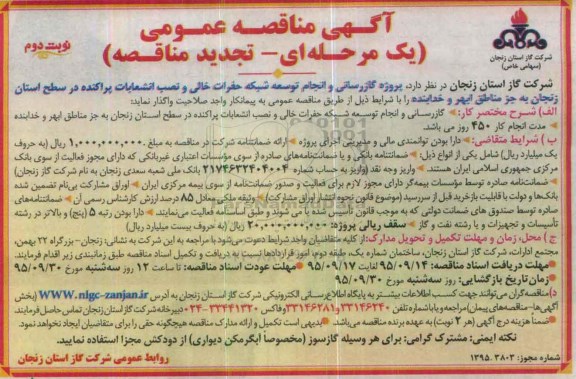 آگهی مناقصه عمومی
(یک مرحله‌ای - تجدید مناقصه)
نوبت دوم
شرکت گاز استان زنجان
(سهامی خاص)
شرکت گاز استان زنجان در نظر دارد، پروژه گازرسانی و انجام توسعه شبکه حفرات خالی و نصب انشعابات پراکنده در سطح استان
زنجان به جز مناطق ابهر و خدابنده را با شرایط ذیل از طریق مناقصه عمومی به پیمانکار واجد صلاحیت واگذار نماید:
الف) شرح مختصر کار: گازرسانی و انجام توسعه شبکه حفرات خالی و نصب انشعابات پراکنده در سطح استان زنجان به جز مناطق ابهر و خدابنده
مدت انجام کار ۴۵۰ روز می باشد.
ب) شرایط متقاضی: دارا بودن توانمندی مالی و مدیریتی اجرای پروژه ارائه ضمانتنامه شرکت در مناقصه به مبلغ ۱,۰۰۰,۰۰۰,۰۰۰ ریال (به حروف
یک میلیارد ریال) شامل یکی از انواع ذیل: ضمانتنامه بانکی و یا ضمانت‌نامه‌های صادره از سوی مؤسسات اعتباری غیربانکی که دارای مجوز فعالیت از سوی بانک
مرکزی جمهوری اسلامی ایران هستند. واریز وجه نقد (واریز به حساب شماره ۲۱۷۴۶۳۲۴۰۴۰۰۴ بانک ملی شعبه سعدی زنجان به نام شرکت گاز زنجان)
ضمانت‌نامه صادره توسط مؤسسات بیمه‌گر دارای مجوز لازم برای فعالیت و صدور ضمانت‌نامه از سوی بیمه مرکزی ایران اوراق مشارکت بی‌نام تضمین شده
بانک‌ها و دولت با قابلیت بازخرید قبل از سررسید (موضوع قانون نحوه انتشار اوراق مشارکت) وثیقه ملکی معادل ۸۵ درصد ارزش کارشناس رسمی آن ضمانتنامه‌های
صادره توسط صندوق های ضمانت دولتی که به موجب قانون تأسیس شده یا می شوند و طبق اساسنامه فعالیت می‌نمایند. دارا بودن رتبه ۵ (پنج) و بالاتر در رشته
تأسیسات و تجهیزات و یا رشته نفت و گاز سقف ریالی پروژه: ۲۰,۰۰۰,۰۰۰,۰۰۰ ریال (به حروف بیست میلیارد ریال)
ج) محل، زمان و مهلت تکمیل و تحویل مدارک: از کلیه متقاضیان واجد شرایط دعوت می‌شود با مراجعه به این شرکت به نشانی: زنجان - بزرگراه ۲۲ بهمن،
مجتمع ادارات، شرکت گاز استان زنجان، ساختمان شماره یک، طبقه دوم، امور قراردادها نسبت به دریافت و تکمیل اسناد مناقصه طبق زمانبندی زیر اقدام فرمایند.
مهلت دریافت اسناد مناقصه: ۹۵/۰۹/۱۴ لغایت ۹۵/۰۹/۱۷ مهلت عودت اسناد مناقصه: تا ساعت ۱۲ روز سه‌شنبه مورخ ۹۵/۰۹/۳۰
زمان تاریخ بازگشایی: روز سه‌شنبه مورخ ۹۵/۰۹/۳۰
د) مناقصه‌گران می‌توانند جهت کسب اطلاعات بیشتر به پایگاه اطلاع‌رسانی الکترونیکی شرکت گاز استان زنجان به آدرس WWW.nigc-zanjan.ir (بخش
آگهی‌ها- مناقصه‌های پیمان) مراجعه و یا با شماره تلفن ۳۳۱۴۶۲۴۰ و ۳۳۱۴۶۲۸۱ و فاکس ۳۳۴۴۱۳۲۰-۰۲۴ دبیرخانه شرکت گاز استان زنجان تماس حاصل فرمایند.
ضمناً هزینه درج آگهی (هر ۲ نوبت) به عهده برنده مناقصه می‌باشد. بدیهی است تکمیل و ارائه مدارک مناقصه هیچگونه حقی را برای متقاضیان ایجاد نخواهد نمود.
نکته ایمنی: مشترک گرامی؛ برای هر وسیله گازسوز (مخصوصاً آبگرمکن دیواری) از دودکش مجزا استفاده نمایید.
شماره مجوز: ۳۸۰۳ .۱۳۹۵
روابط عمومی شرکت گاز استان زنجان